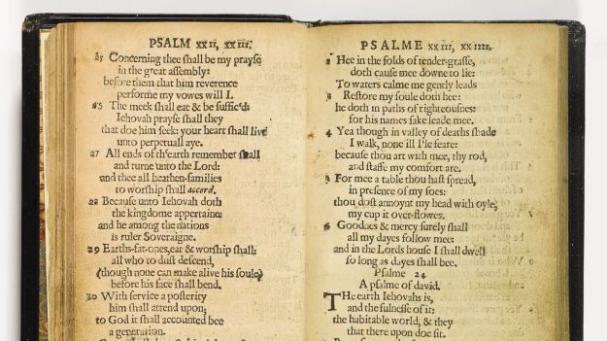 PSALM XXII, XXIII.
25 Concerning thee shall be my prayse
in the great assembly:
before them that him reverence
performe my vowes will I.
The meek shall eat & be suffic'd:
Iehovah prayse shall they
that doe him seek: your heart shall live
unto perpetuall aye.
27 All ends of th'earth remember shall
and turne unto the Lord:
and thee all heathen-families
to worship shall accord.
28 Because unto Iehovah doth
the kingdome appertaine
and he among the nations
is ruler Soveraigne.
29 Earths-fat-ones, eat & worship shall:
all who to dust descend,
(though none can make alive his soule)
before his face shall bend.
30 With service a posterity
him shall attend upon;
to God it shall accounted bee
a generation.
PSALME XXIII, XXIIII.
2 Hee in the folds of tender-grasse,
doth cause mee downe to lie:
To waters calme me gently leads
3 Restore my soule doth hee:
he doth in paths of righteousnes:
for his names sake leade mee.
4 Yea though in valley of deaths shade
I walk, none ill I'le feare:
because thou art with mee, thy rod,
and staffe my comfort are.
5 For mee a table thou hast spread,
in presence of my foes:
thou dost annoynt my head with oyle,
my cup it over-flowes.
6 Goodnes & mercy surely shall
all my dayes follow mee:
and in the Lords house I shall dwell
so long as dayes shall bee.
Psalme 24
A psalme of david.
The earth Iehovahs is,
and the fulnesse of it:
the habitable world, & they
that there upon doe sit.